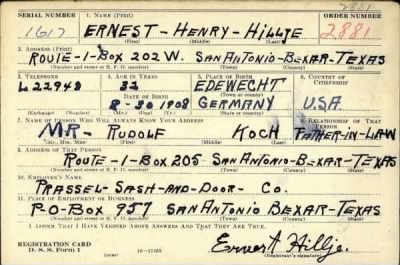 2881
SERIAL NUMBER 1. NAME (Print) ORDER NUMBER
1617 ERNEST-HENRY-HILLJE 2881
(First) (Middle) (Last)
2. ADDRESS (Print)
ROUTE-1-BOX 202 W. SAN ANTONIO-BEXAR-TEXAS
(Number and street or R. F. D. number) (Town) (County) (State)
3. TELEPHONE 4. AGE IN YEARS 5. PLACE OF BIRTH 6. COUNTRY OF CITIZENSHIP
L22948 32 EDEWECHT
DATE OF BIRTH (Town or county)
8-30 1908 GERMANY U.S.A.
(Exchange) (Number) (Mo.) (Day) (Yr.) (State or country)
7. NAME OF PERSON WHO WILL ALWAYS KNOW YOUR ADDRESS 8. RELATIONSHIP OF THAT PERSON
MR- RUDOLF KOCH FATHER-IN-LAW
(Mr., Mrs., Miss) (First) (Middle) (Last)
9. ADDRESS OF THAT PERSON
ROUTE-1-BOX 205 SAN ANTONIO-BEXAR-TEXAS
(Number and street or R. F. D. number) (Town) (County) (State)
10. EMPLOYER'S NAME
PRASSEL-SASH-AND-DOOR- CO.
11. PLACE OF EMPLOYMENT OR BUSINESS
P-O-BOX 957 SAN ANTONIO BEXAR-TEXAS
(Number and street or R. F. D. number) (Town) (County) (State)
I AFFIRM THAT I HAVE VERIFIED ABOVE ANSWERS AND THAT THEY ARE TRUE.
REGISTRATION CARD
D. S. S. Form 1 16-17105 Ernest Hillje.
(Registrant's signature)